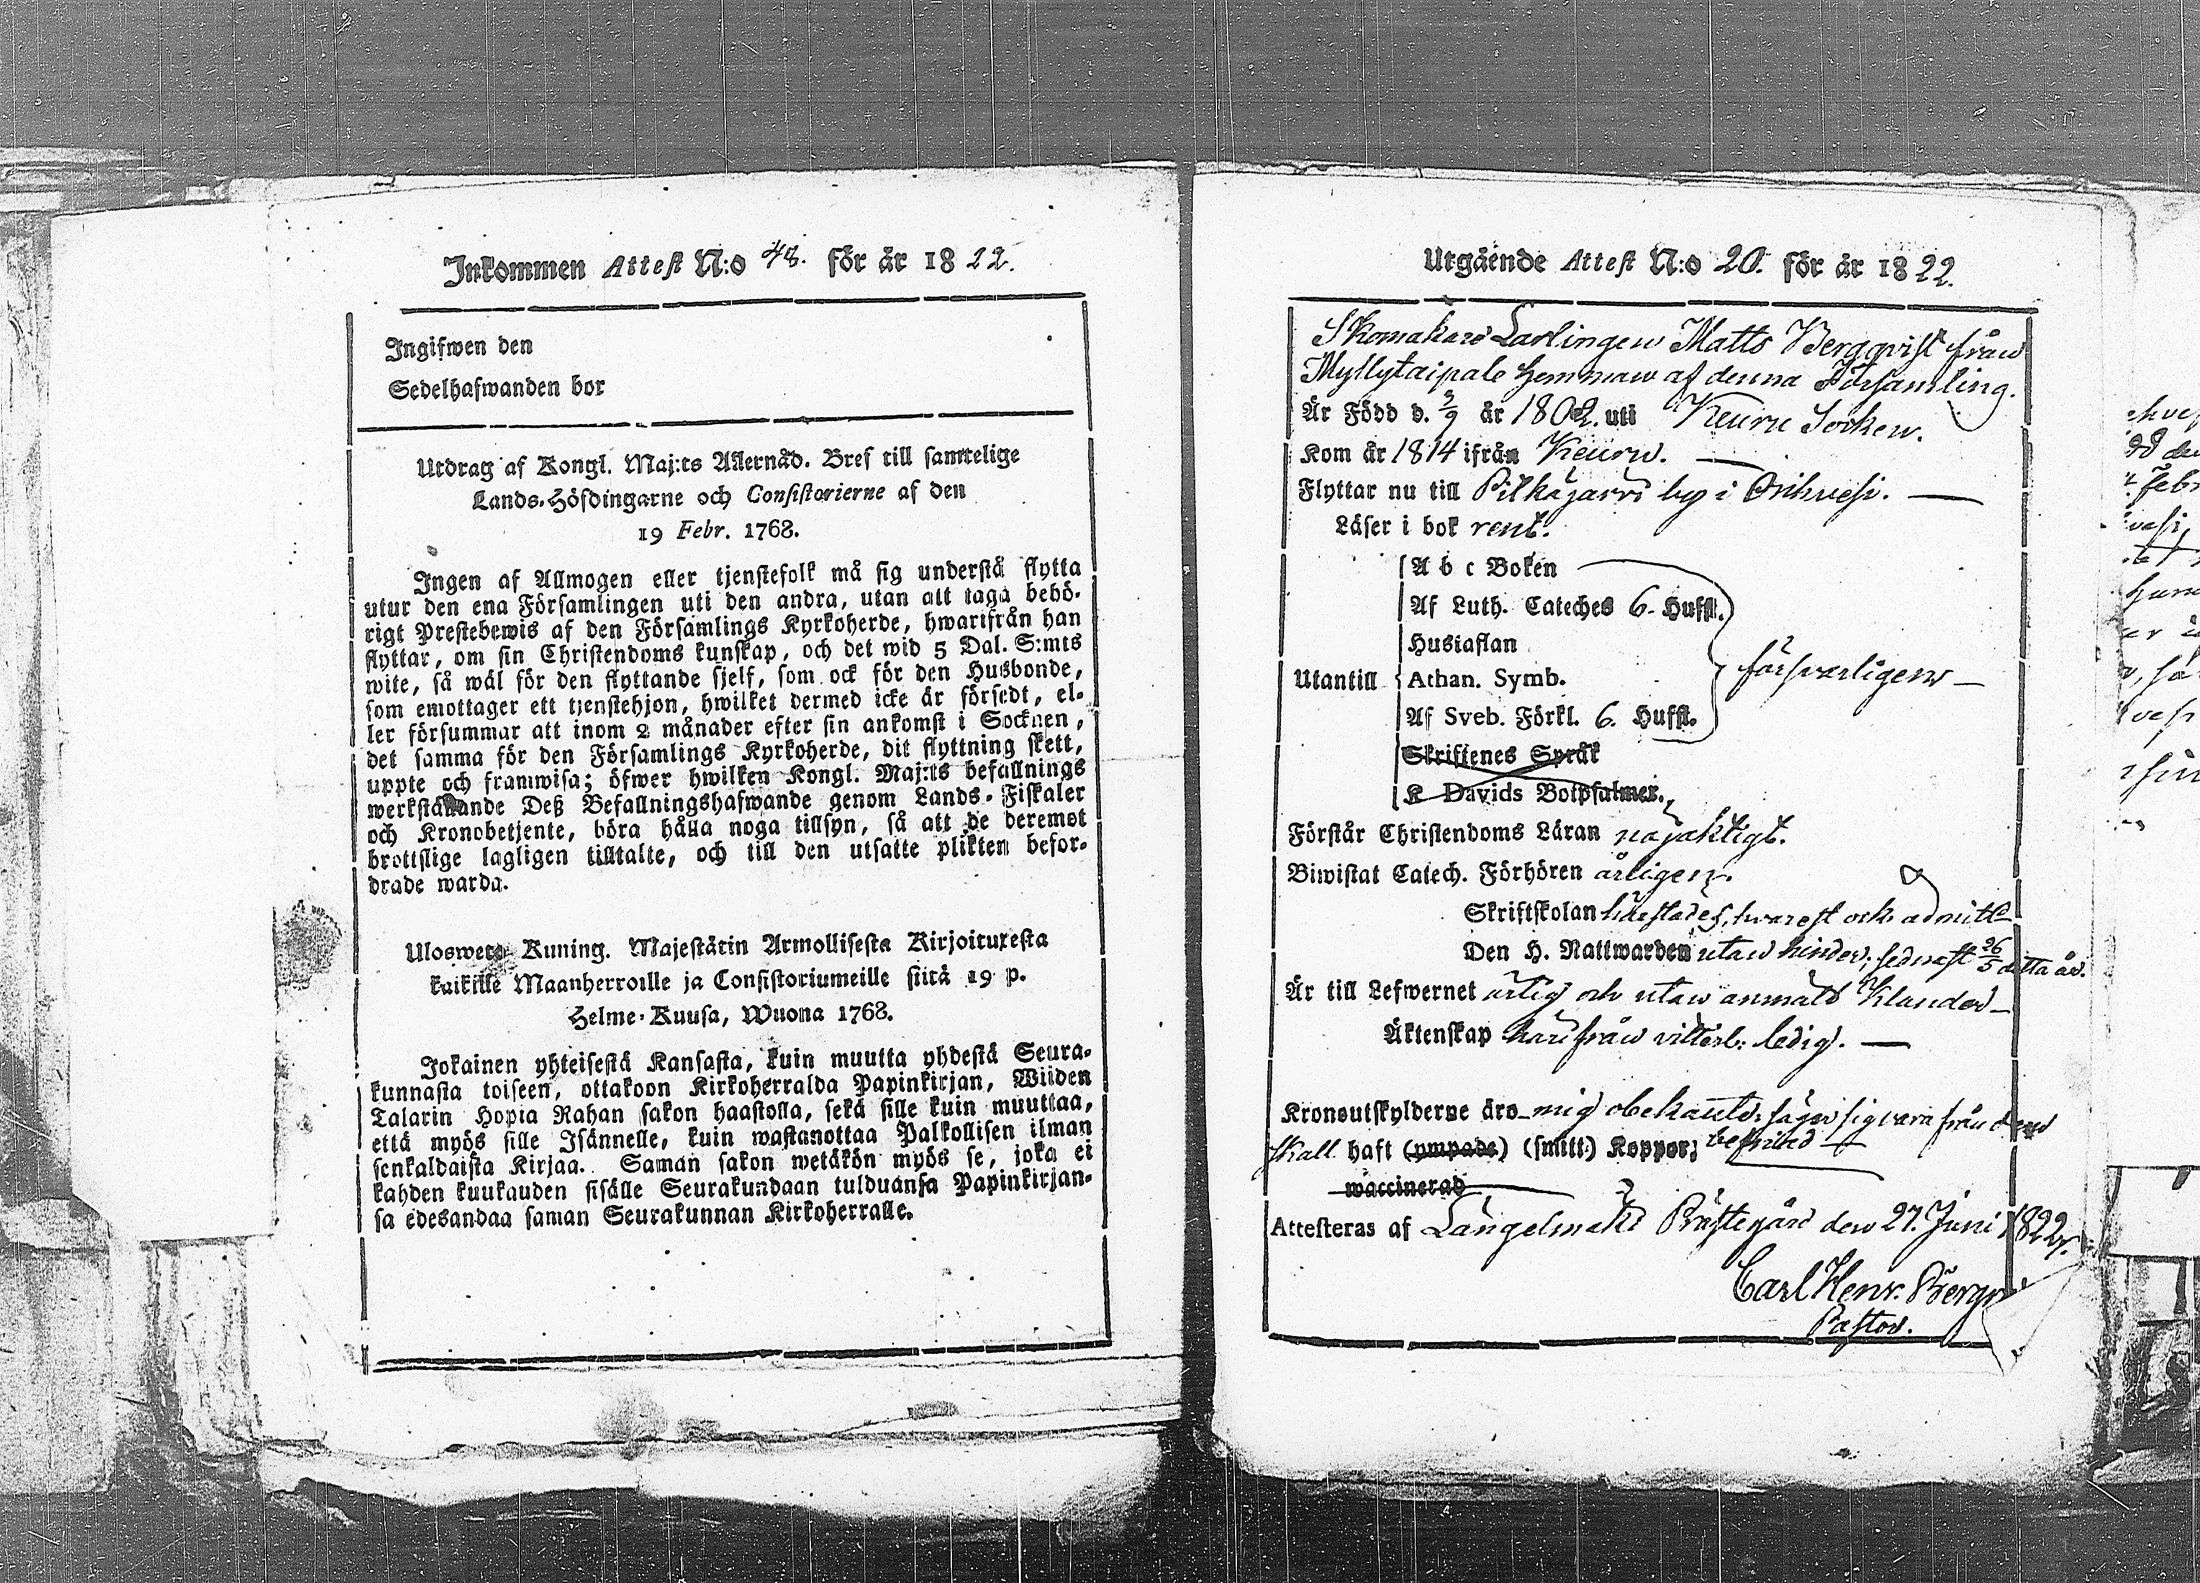 Inkommen Attest N:o 48. för år 1822.
Ingifwen den
Sedelhafwanden bor
Utdrag af Kongl. Maj:ts Allernåd. Bref till samtelige
Lands-Höfdingarne och Consistorierne af den
19 Febr. 1768.
Ingen af Allmogen eller tjenstefolk må sig understå flytta
utur den ena Församlingen uti den andra, utan att taga behö-
rigt Prestebewis af den Församlings Kyrkoherde, hwarifrån han
flyttar, om sin Christendoms kunskap, och det wid 5 Dal. S:mts
wite, så wäl för den flyttande sjelf, som ock för den Husbonde,
som emottager ett tjenstehjon, hwilket dermed icke är försedt, el-
ler försummar att inom 2 månader efter sin ankomst i Socknen,
det samma för den Församlings Kyrkoherde, dit flyttning skett,
uppte och framwisa; öfwer hwilken Kongl. Maj:ts befallnings
werkställande Deß Befallningshafwande genom Lands-Fiskaler
och Kronobetjente, böra hålla noga tillsyn, så att de deremot
brottslige lagligen tilltalte, och till den utsatte plikten befor-
drade warda.
Ulosweto Kuning. Majestätin Armollisesta Kirjoituxesta
kaikille Maanherroille ja Consistoriumeille siitä 19 p.
Helme-Kuusa, Wuona 1768.
Jokainen yhteisestä Kansasta, kuin muutta yhdestä Seura-
kunnasta toiseen, ottakoon Kirkoherralda Papinkirjan, Wiiden
Talarin Hopia Rahan sakon haastolla, sekä sille kuin muuttaa,
että myös sille Isännelle, kuin wastanottaa Palkollisen ilman
senkaldaista Kirjaa. Saman sakon wetäkön myös se, joka ei
kahden kuukauden sisälle Seurakundaan tulduansa Papinkirjan-
sa edesandaa saman Seurakunnan Kirkoherralle.
Utgående Attest N:o 20. för år 1822.
Skomakare Lärlingen Matts Bergqvist från
Myllytaipale hemman af denna Församling.
Är Född d. 5/9 år 1802. uti Keuru Socken.
Kom år 1814 ifrån Keuru.
Flyttar nu till Pilkajärvi by i Orihvesi.
Läser i bok rent.
A b c Boken
Af Luth. Cateches 6. Hufst.
Hustaflan
Utantill Athan. Symb. försvarligen
Af Sveb. Förkl. 6. Hufst.
Skriftenes Språk
K Davids Botpsalmer.
Förstår Christendoms Läran nöjaktigt.
Biwistat Catech. Förhören årligen.
Skriftskolan härstädes, hwarest ock admitt.
Den H. Nattwarden utan hinder, sednast 26/5 detta år.
Är till Lefwernet ärlig och utan anmäld Klander
Äktenskap härifrån vitterl: ledig.
Kronoutskylderne äro mig obekante, säger sig vara från dem
Skall haft (ympade) (smitt.) Koppor; befriad
waccinerad
Attesteras af Längelmäki Prästegård den 27. Juni 1822.
Carl Henr. Bergr
Pastor.